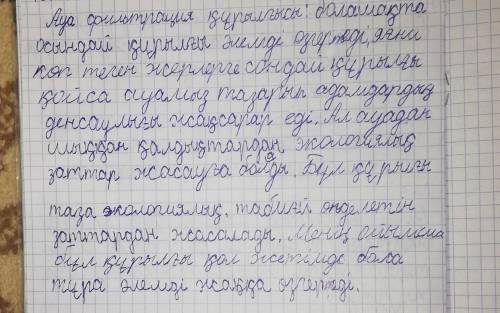 Ауа фильтрация құрылғысы: болашақта
осындай құрылғы әлемді өзгертеді, яғни
көп теген жерлерге сондай құрылғы
қойса ауамыз тазарып адамдардың
денсаулығы жақсарар еді. Ал ауадан
шыққан қалдықтардан экологиялық
заттар жасауға болады. Бұл құрылғы
таза экологиялық, табиғи өңделетін
заттардан жасалады. Менің ойымша
бұл құрылғы қол жетімде бола
тұра әлемді жаққа өзгертеді.